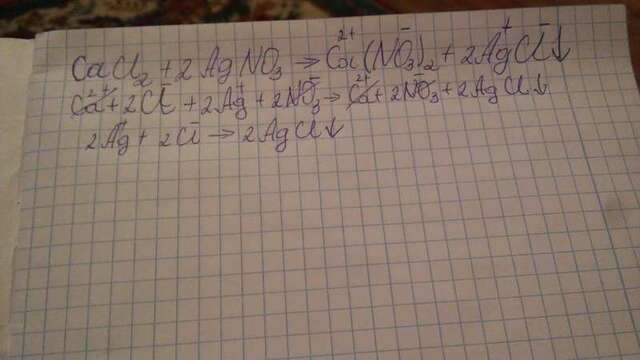 CaCl₂ + 2AgNO₃ → Ca²⁺(NO₃⁻)₂ + 2Ag⁺Cl⁻↓
Ca²⁺ + 2Cl⁻ + 2Ag⁺ + 2NO₃⁻ → Ca²⁺ + 2NO₃⁻ + 2AgCl↓
2Ag⁺ + 2Cl⁻ → 2AgCl↓